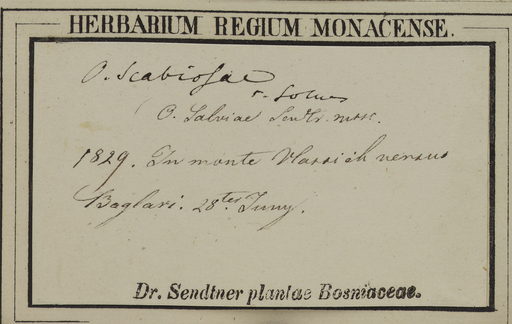 HERBARIUM REGIUM MONACENSE.
O. Scabiosae
O. Salviae Sendtr. mssc.
1829. In monte Vlassich versus
Baglari. 28ten Juny.
Dr. Sendtner plantae Bosniaceae.